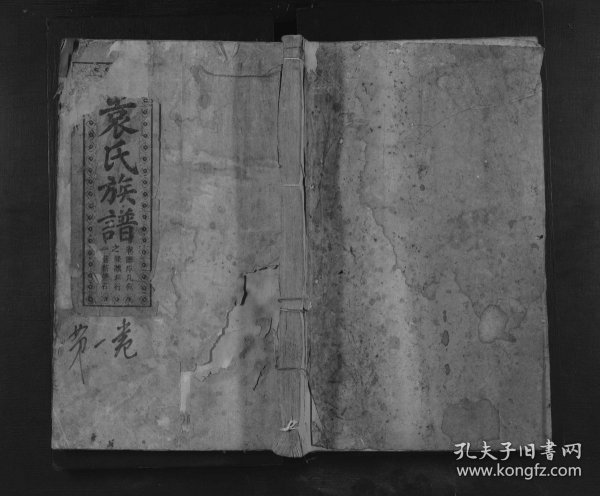 袁氏族譜
第一卷
孔夫子旧书网
www.kongfz.com